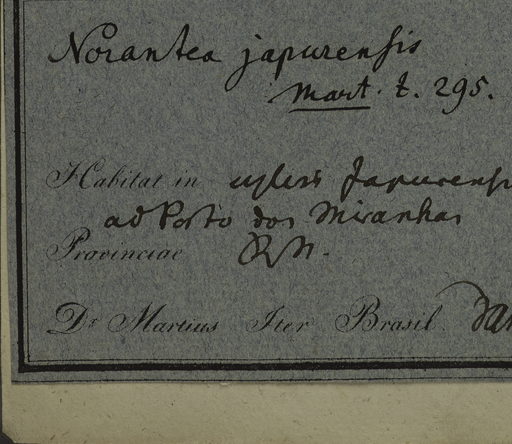 Norantea japurensis
Mart. t. 295.
Habitat in sylvis Japurens
ad Porto dos Miranhas
Provinciae R. N.
Dr Martius Iter Brasil.